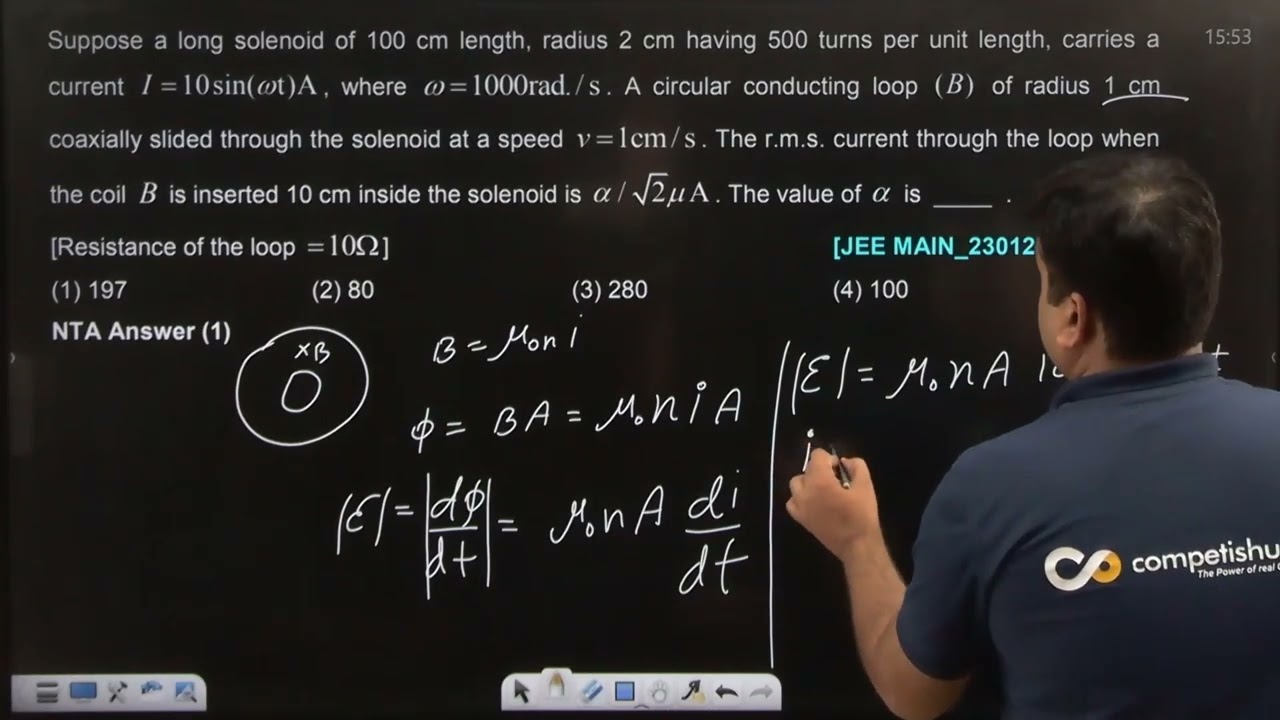 Suppose a long solenoid of 100 cm length, radius 2 cm having 500 turns per unit length, carries a
15:53
current I = 10 sin(ωt)A, where ω = 1000rad./s. A circular conducting loop (B) of radius 1 cm
coaxially slided through the solenoid at a speed v = 1cm/s. The r.m.s. current through the loop when
the coil B is inserted 10 cm inside the solenoid is α/√2μA. The value of α is ____ .
[Resistance of the loop = 10Ω]
[JEE MAIN_23012
(1) 197 (2) 80 (3) 280 (4) 100
NTA Answer (1)
×B
B = μ₀ n i
φ = BA = μ₀ n i A
|ε| = |dφ/dt| = μ₀ n A di/dt
|ε| = μ₀ n A
i
competishu
The Power of real